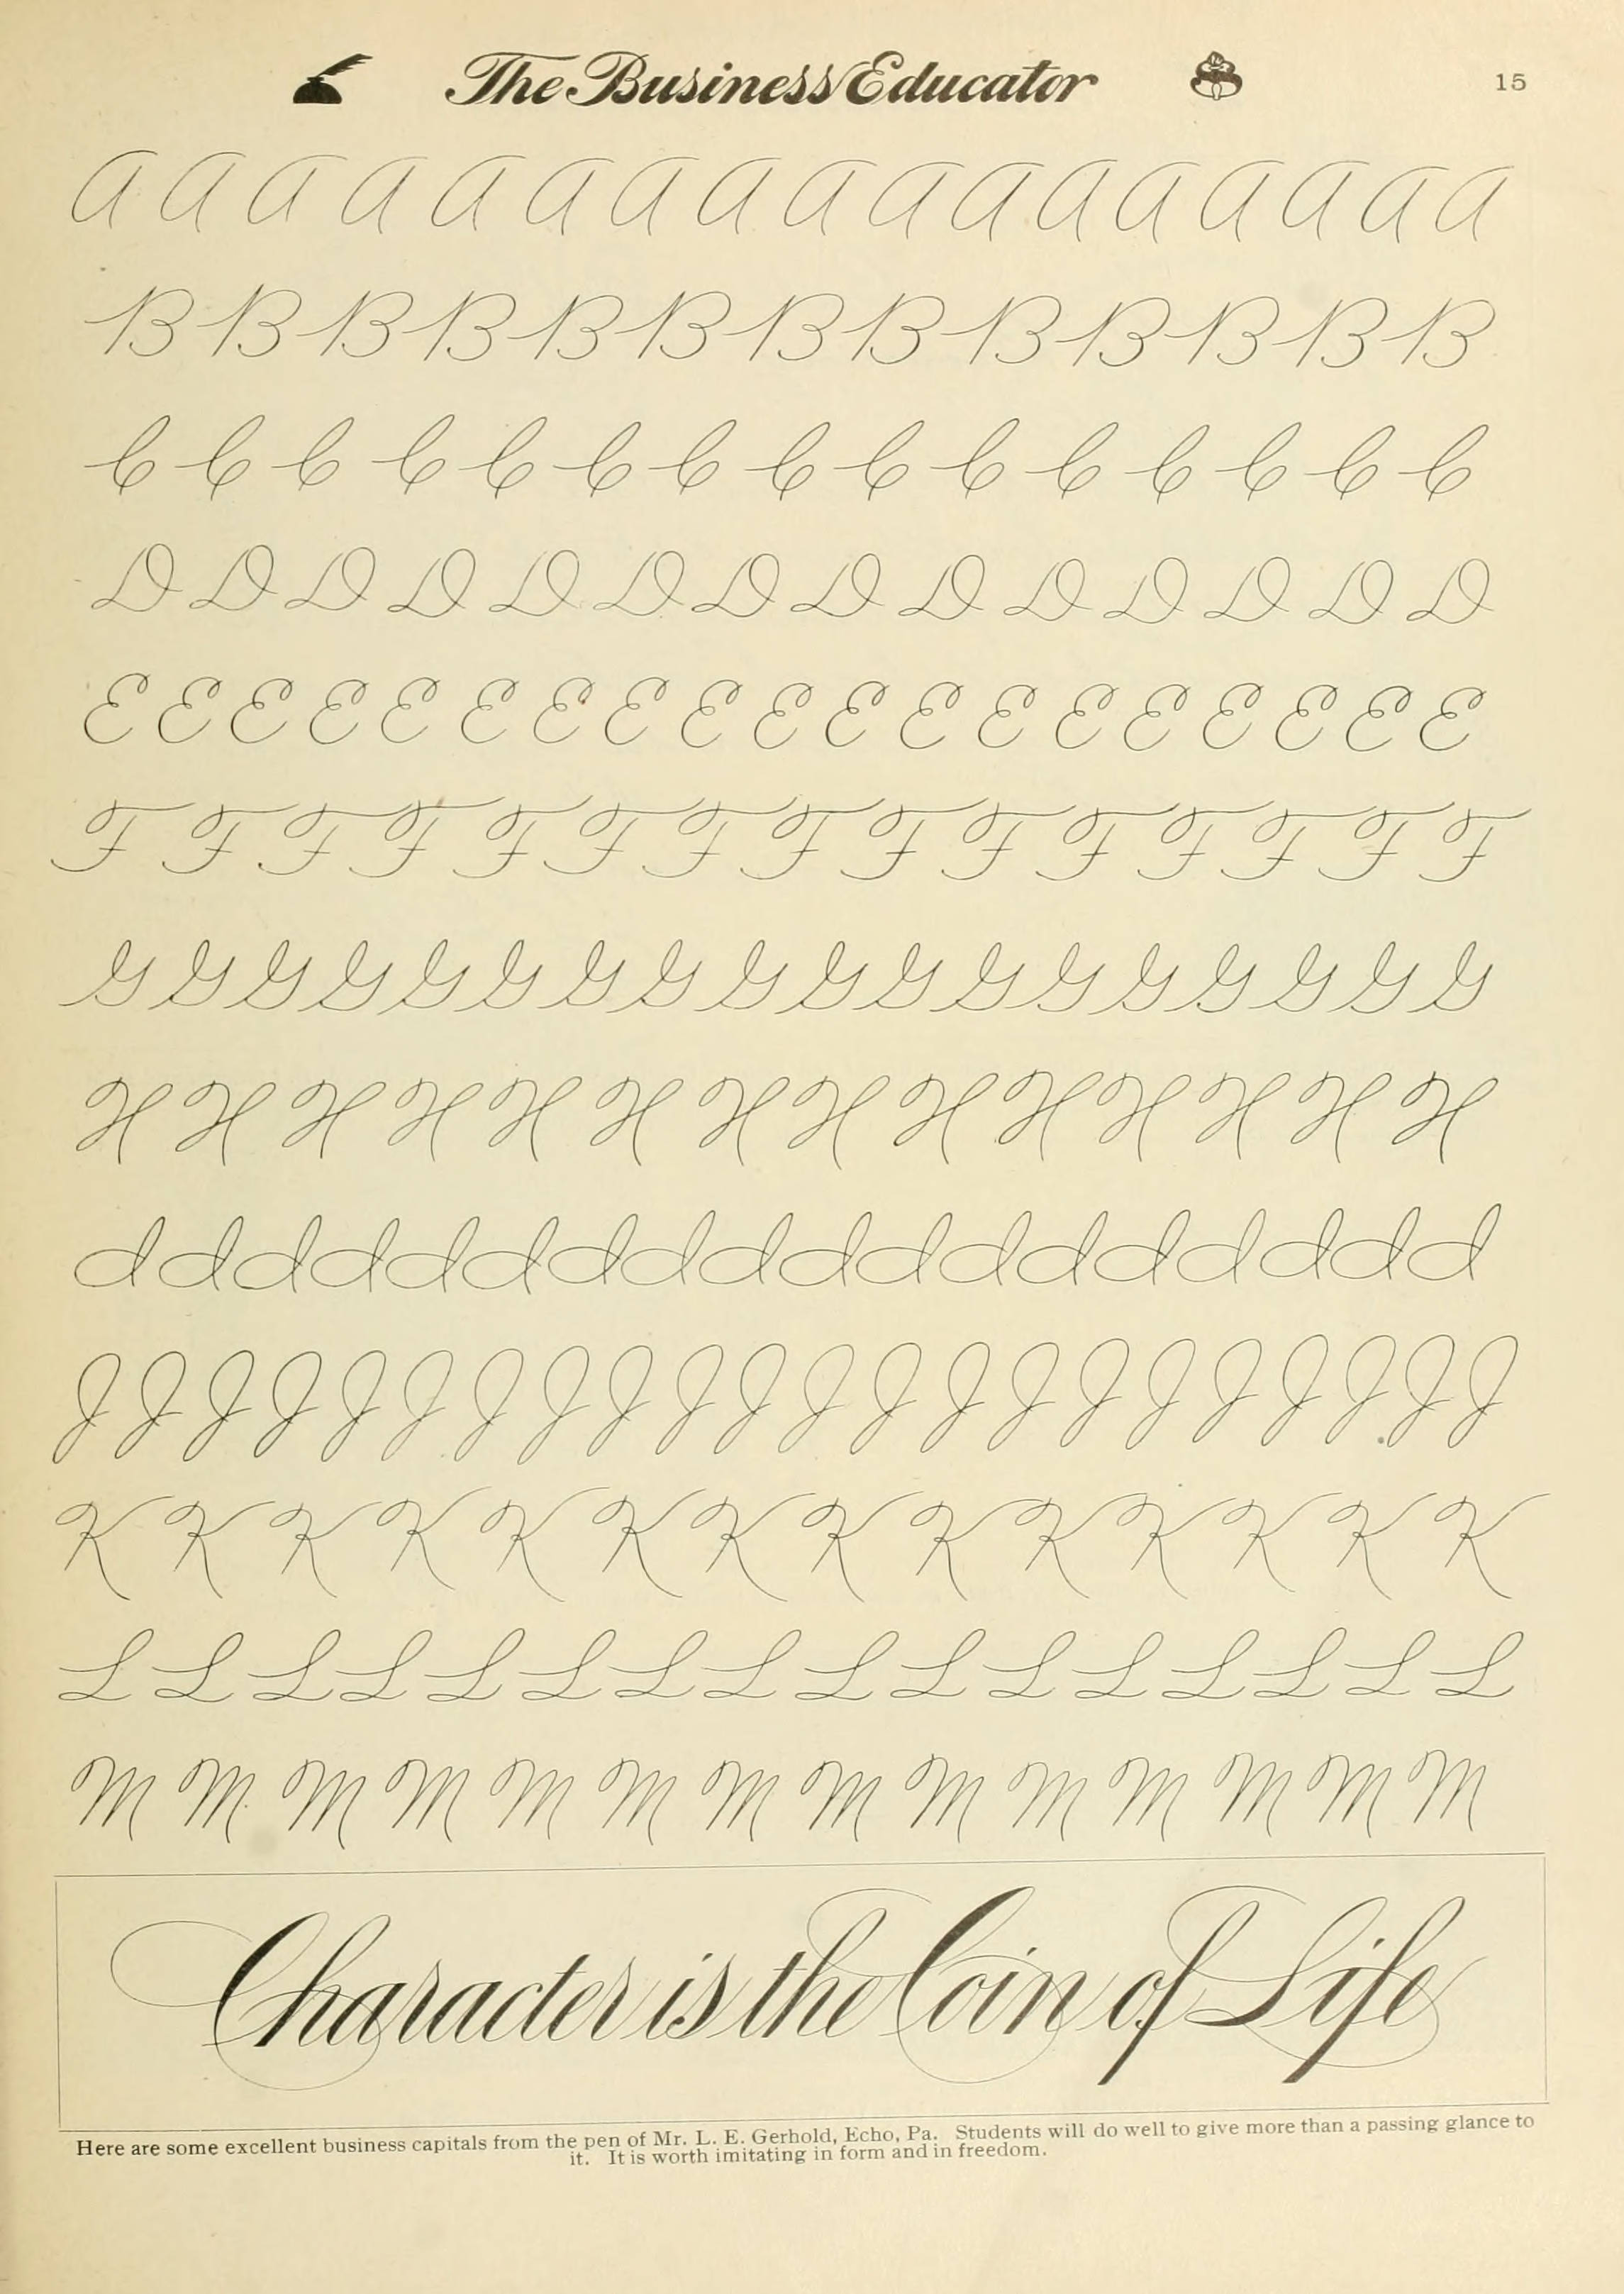 The Business Educator 15
A A A A A A A A A A A A A A A A A
B B B B B B B B B B B B B
C C C C C C C C C C C C C C C
D D D D D D D D D D D D D D
E E E E E E E E E E E E E E E E E E E
F F F F F F F F F F F F F F F
G G G G G G G G G G G G G G G G G G
H H H H H H H H H H H H H H
I I I I I I I I I I I I I I I I I I
J J J J J J J J J J J J J J J J J J J J J J
K K K K K K K K K K K K K K
L L L L L L L L L L L L L L L L
M M M M M M M M M M M M M M
Character is the Coin of Life
Here are some excellent business capitals from the pen of Mr. L. E. Gerhold, Echo, Pa. Students will do well to give more than a passing glance to
it. It is worth imitating in form and in freedom.